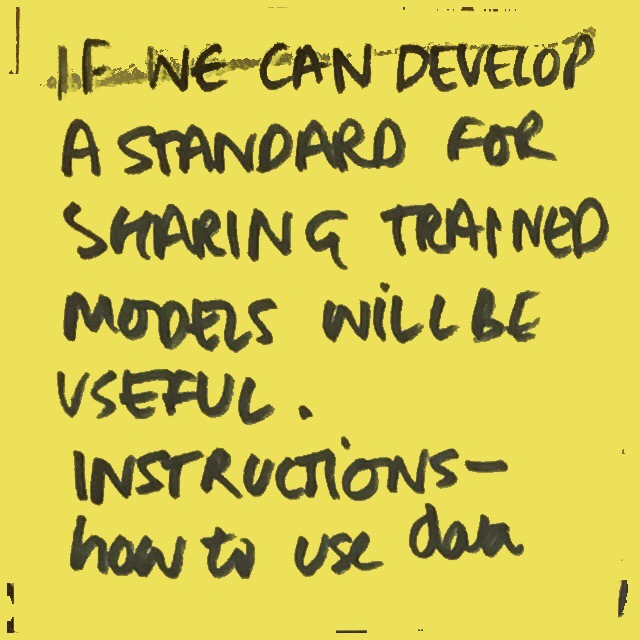 IF WE CAN DEVELOP
A STANDARD FOR
SHARING TRAINED
MODELS WILL BE
USEFUL.
INSTRUCTIONS-
how to use data